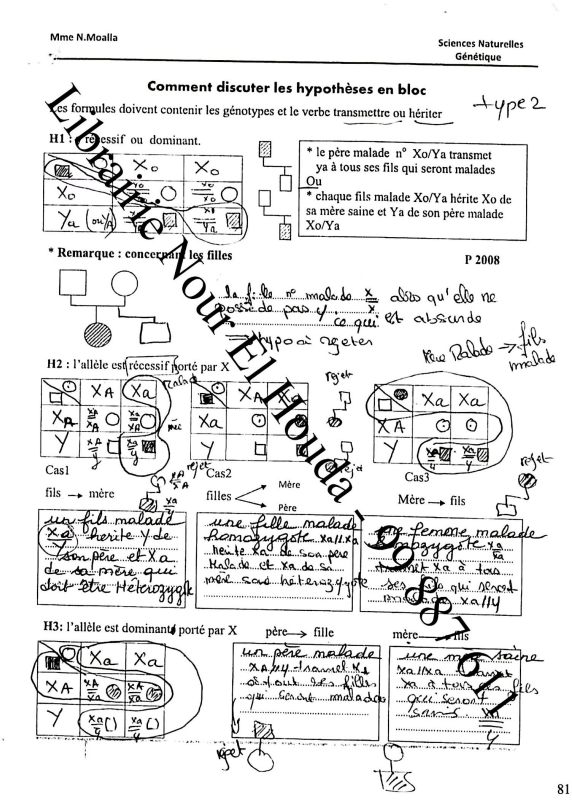 Mme N.Moalla
Sciences Naturelles
Génétique
Comment discuter les hypothèses en bloc
Les formules doivent contenir les génotypes et le verbe transmettre ou hériter
type 2
H1 : récessif ou dominant.
Xo Xo
Xo
Ya (ou YA)
* le père malade n° Xo/Ya transmet
ya à tous ses fils qui seront malades
Ou
* chaque fils malade Xo/Ya hérite Xo de
sa mère saine et Ya de son père malade
Xo/Ya
* Remarque : concernant les filles
P 2008
la fille n° malade x/x alors qu'elle ne
possède pas y ce qui est absurde
hypo à rejeter
Mère malade → fils malade
H2 : l'allèle est récessif porté par X
XA Xa
XA
Y
XA Xa
Xa
Y
Xa Xa
XA
Y
rejet
rejet
rejet
rejet
Cas1
Cas2
Cas3
fils → mère
filles
Mère
Père
Mère → fils
un fils malade
Xa/Y hérite Y de
son père et Xa
de sa mère qui
doit être Hétérozygote
une fille malade
homozygote xa//xa
hérite Xa de son père
Malade et xa de sa
mère sans hétérozygote
une femme malade
homozygote xa/xa
transmet xa à tous
ses fils qui seront
malades xa//y
H3: l'allèle est dominant porté par X
père → fille
mère → fils
Xa Xa
XA
Y
un père malade
XA//Y transmet XA
à tout ses filles
qui seront malades
une mère saine
xa//xa transmet
xa à tous ses fils
qui seront
sains xa/y
rejet
Librairie Nour El Houda
81